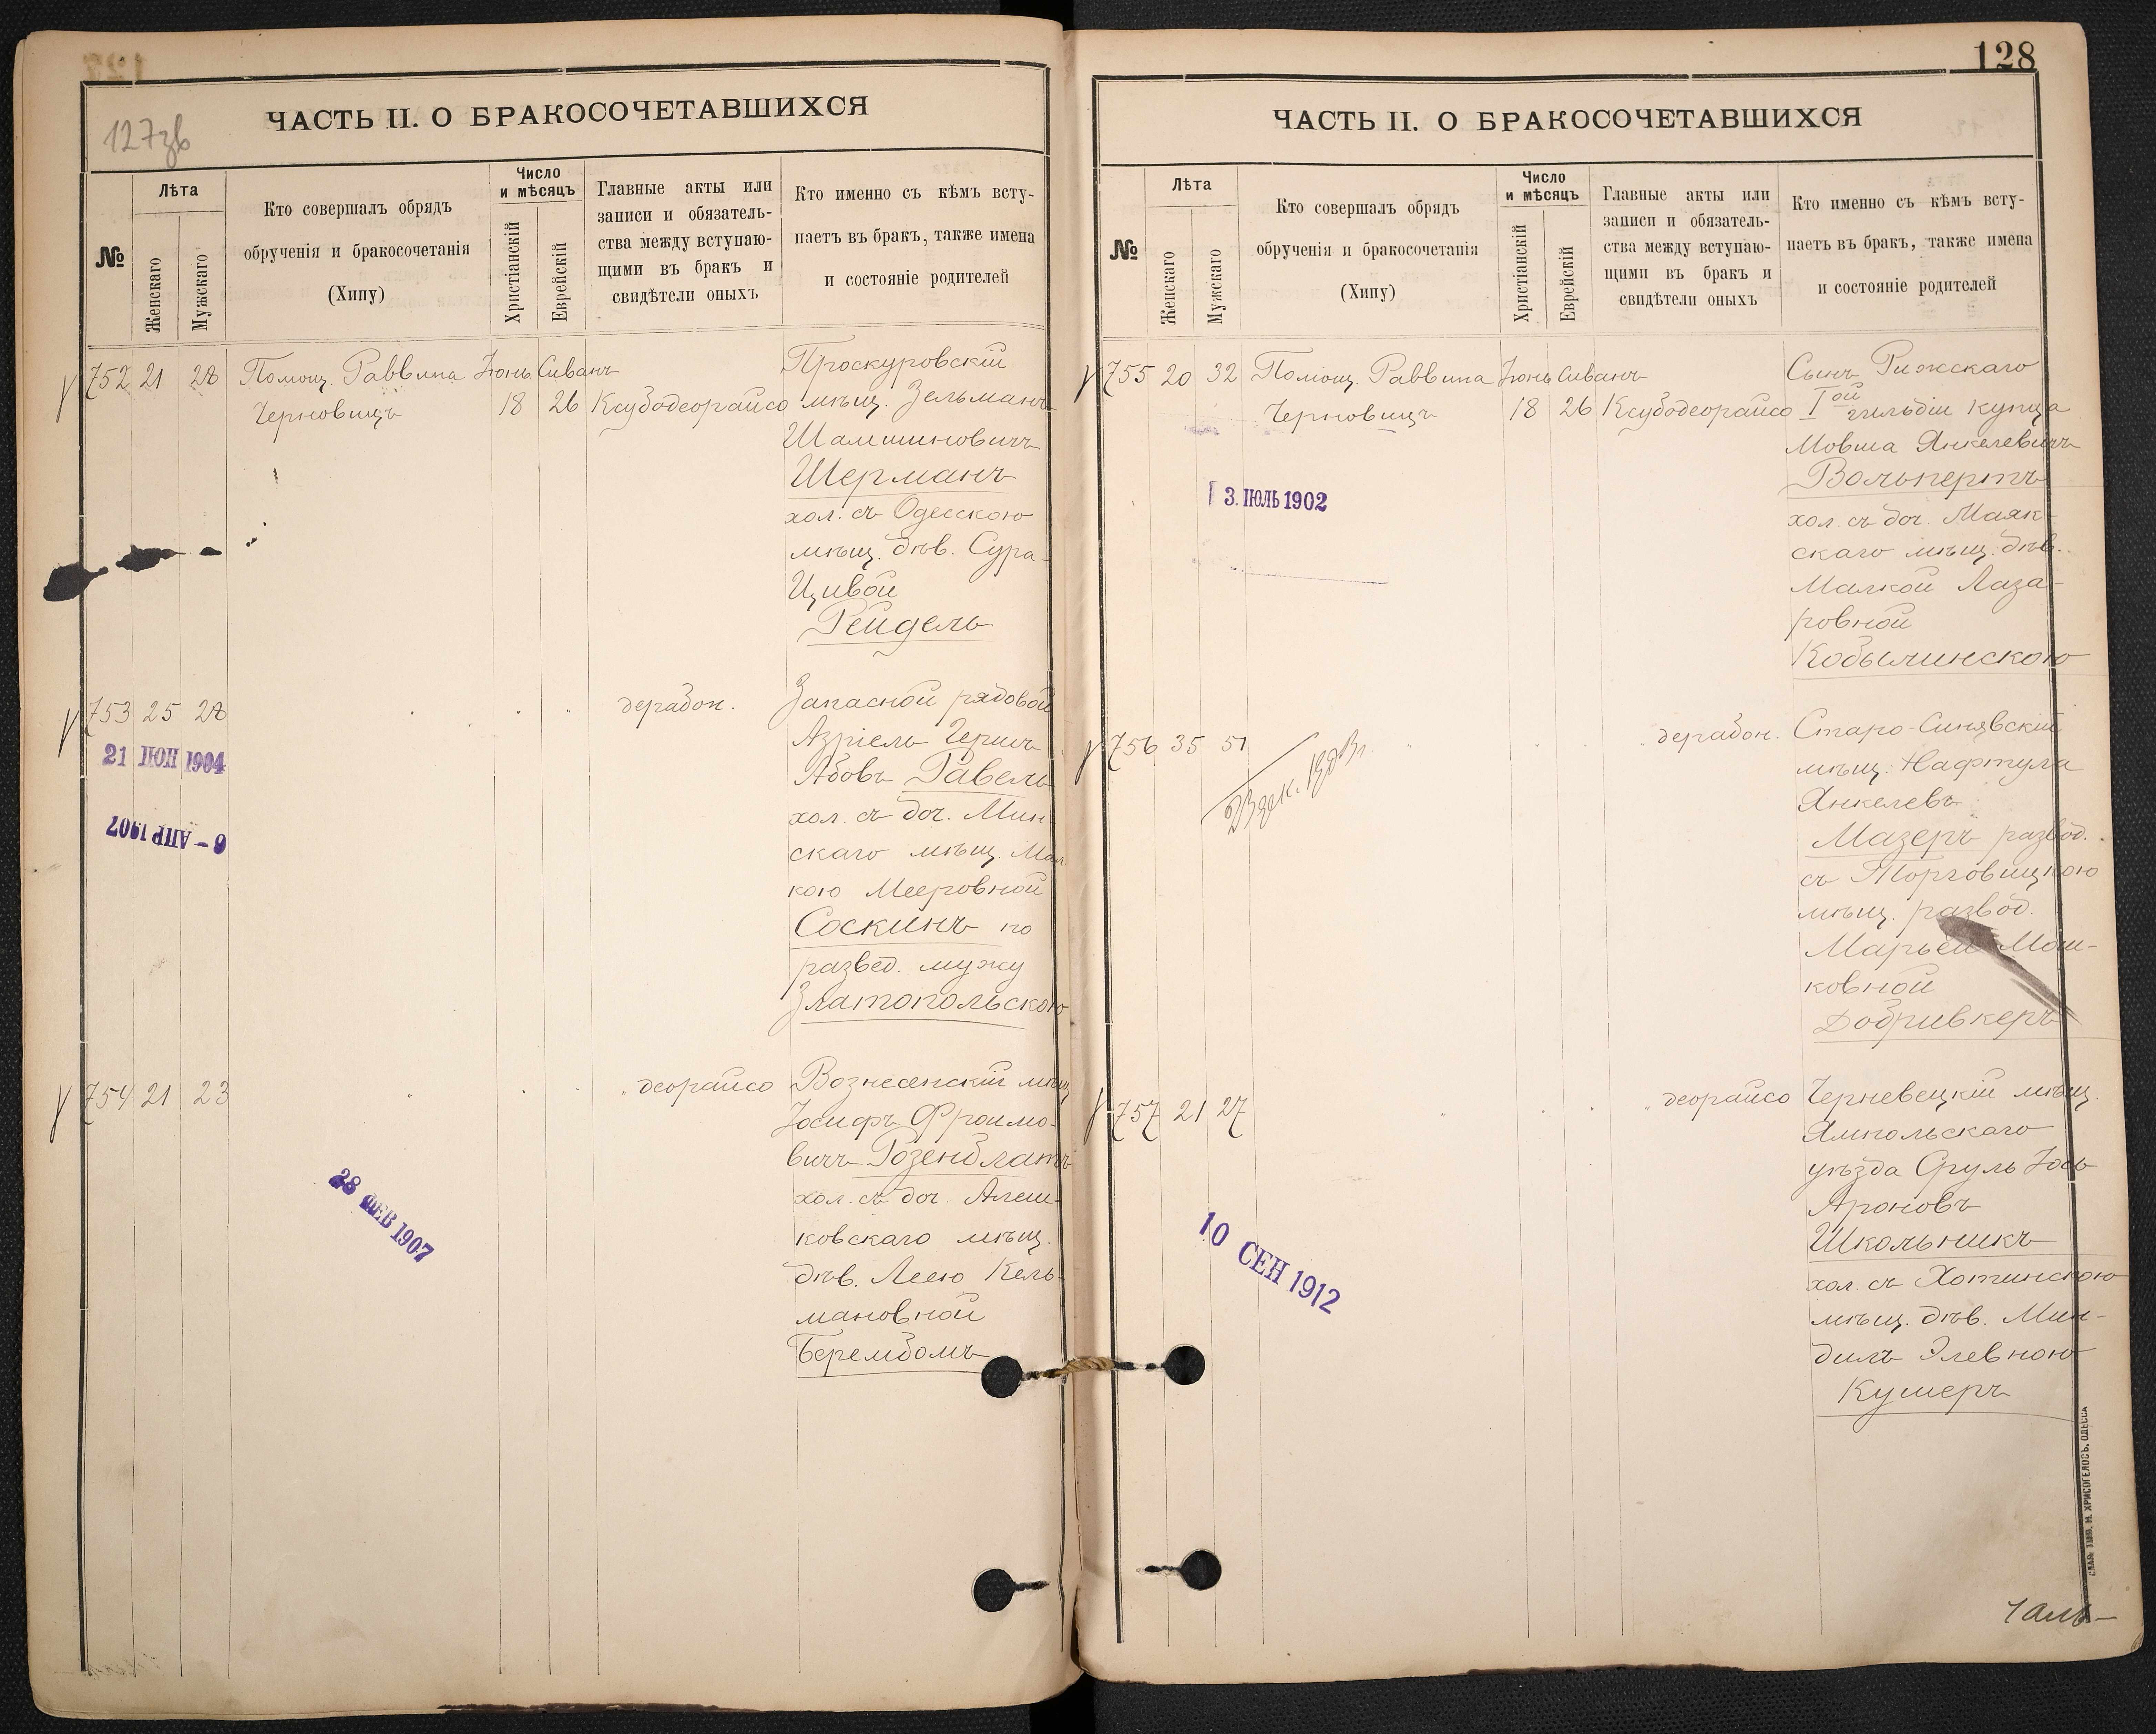 127зв
ЧАСТЬ II. О БРАКОСОЧЕТАВШИХСЯ
№
Лѣта
Женскаго
Мужскаго
Кто совершалъ обрядъ
обрученія и бракосочетанія
(Хипу)
Число
и мѣсяцъ
Христіанскій
Еврейскій
Главные акты или
записи и обязатель-
ства между вступаю-
щими въ бракъ и
свидѣтели оныхъ
Кто именно съ кѣмъ всту-
паетъ въ бракъ, также имена
и состояніе родителей
752 21 28 Помощ. Раввина Іюнь Сиванъ Проскуровскій
Черновицъ 18 26 Ксубодеорайсо мѣщ. Зельманъ
Шамшиновичъ
Шерманъ
хол. съ Одесскою
мѣщ. дѣв. Сура-
Цивой
Рейдель
753 25 28 дерабон. Запасной рядовой
Азріель Гершъ
Абовъ Равель
хол. съ доч. Мин-
скаго мѣщ. Мал
кою Мееровной
Соскинъ по
развед. мужу
Златопольскою
21 ІЮН 1904
6 - АПР 1907
754 21 23 деорайсо Вознесенскій мѣщ
Іосифъ Фроимо-
вичъ Розенблатъ
хол. съ доч. Алеш-
ковскаго мѣщ.
дѣв. Леею Кель-
мановной
Берембомъ
28 ФЕВ 1907
128
ЧАСТЬ II. О БРАКОСОЧЕТАВШИХСЯ
№
Лѣта
Женскаго
Мужскаго
Кто совершалъ обрядъ
обрученія и бракосочетанія
(Хипу)
Число
и мѣсяцъ
Христіанскій
Еврейскій
Главные акты или
записи и обязатель-
ства между вступаю-
щими въ бракъ и
свидѣтели оныхъ
Кто именно съ кѣмъ всту-
паетъ въ бракъ, также имена
и состояніе родителей
755 20 32 Помощ. Раввина Іюнь Сиванъ Сынъ Рижскаго
Черновицъ 18 26 Ксубодеорайсо Iой гильдіи купца
Мовша Янкелевичъ
Вольпертъ
хол. съ доч. Маяк-
скаго мѣщ. дѣв.
Малкой Лаза-
ровной
Кобылинскою
3. ІЮЛЬ 1902
756 35 51 дерабон. Старо-Синявскій
мѣщ. Нафтула
Янкелевъ
Мазеръ развод.
съ Торговицкою
мѣщ. развод.
Марьей Мош-
ковной
Добривкеръ
757 21 27 деорайсо Черневецкій мѣщ.
Ямпольскаго
уѣзда Сруль Іось
Ароновъ
Школьникъ
хол. съ Хотинскою
мѣщ. дѣв. Мин-
диль Элевною
Кушеръ
10 СЕН 1912